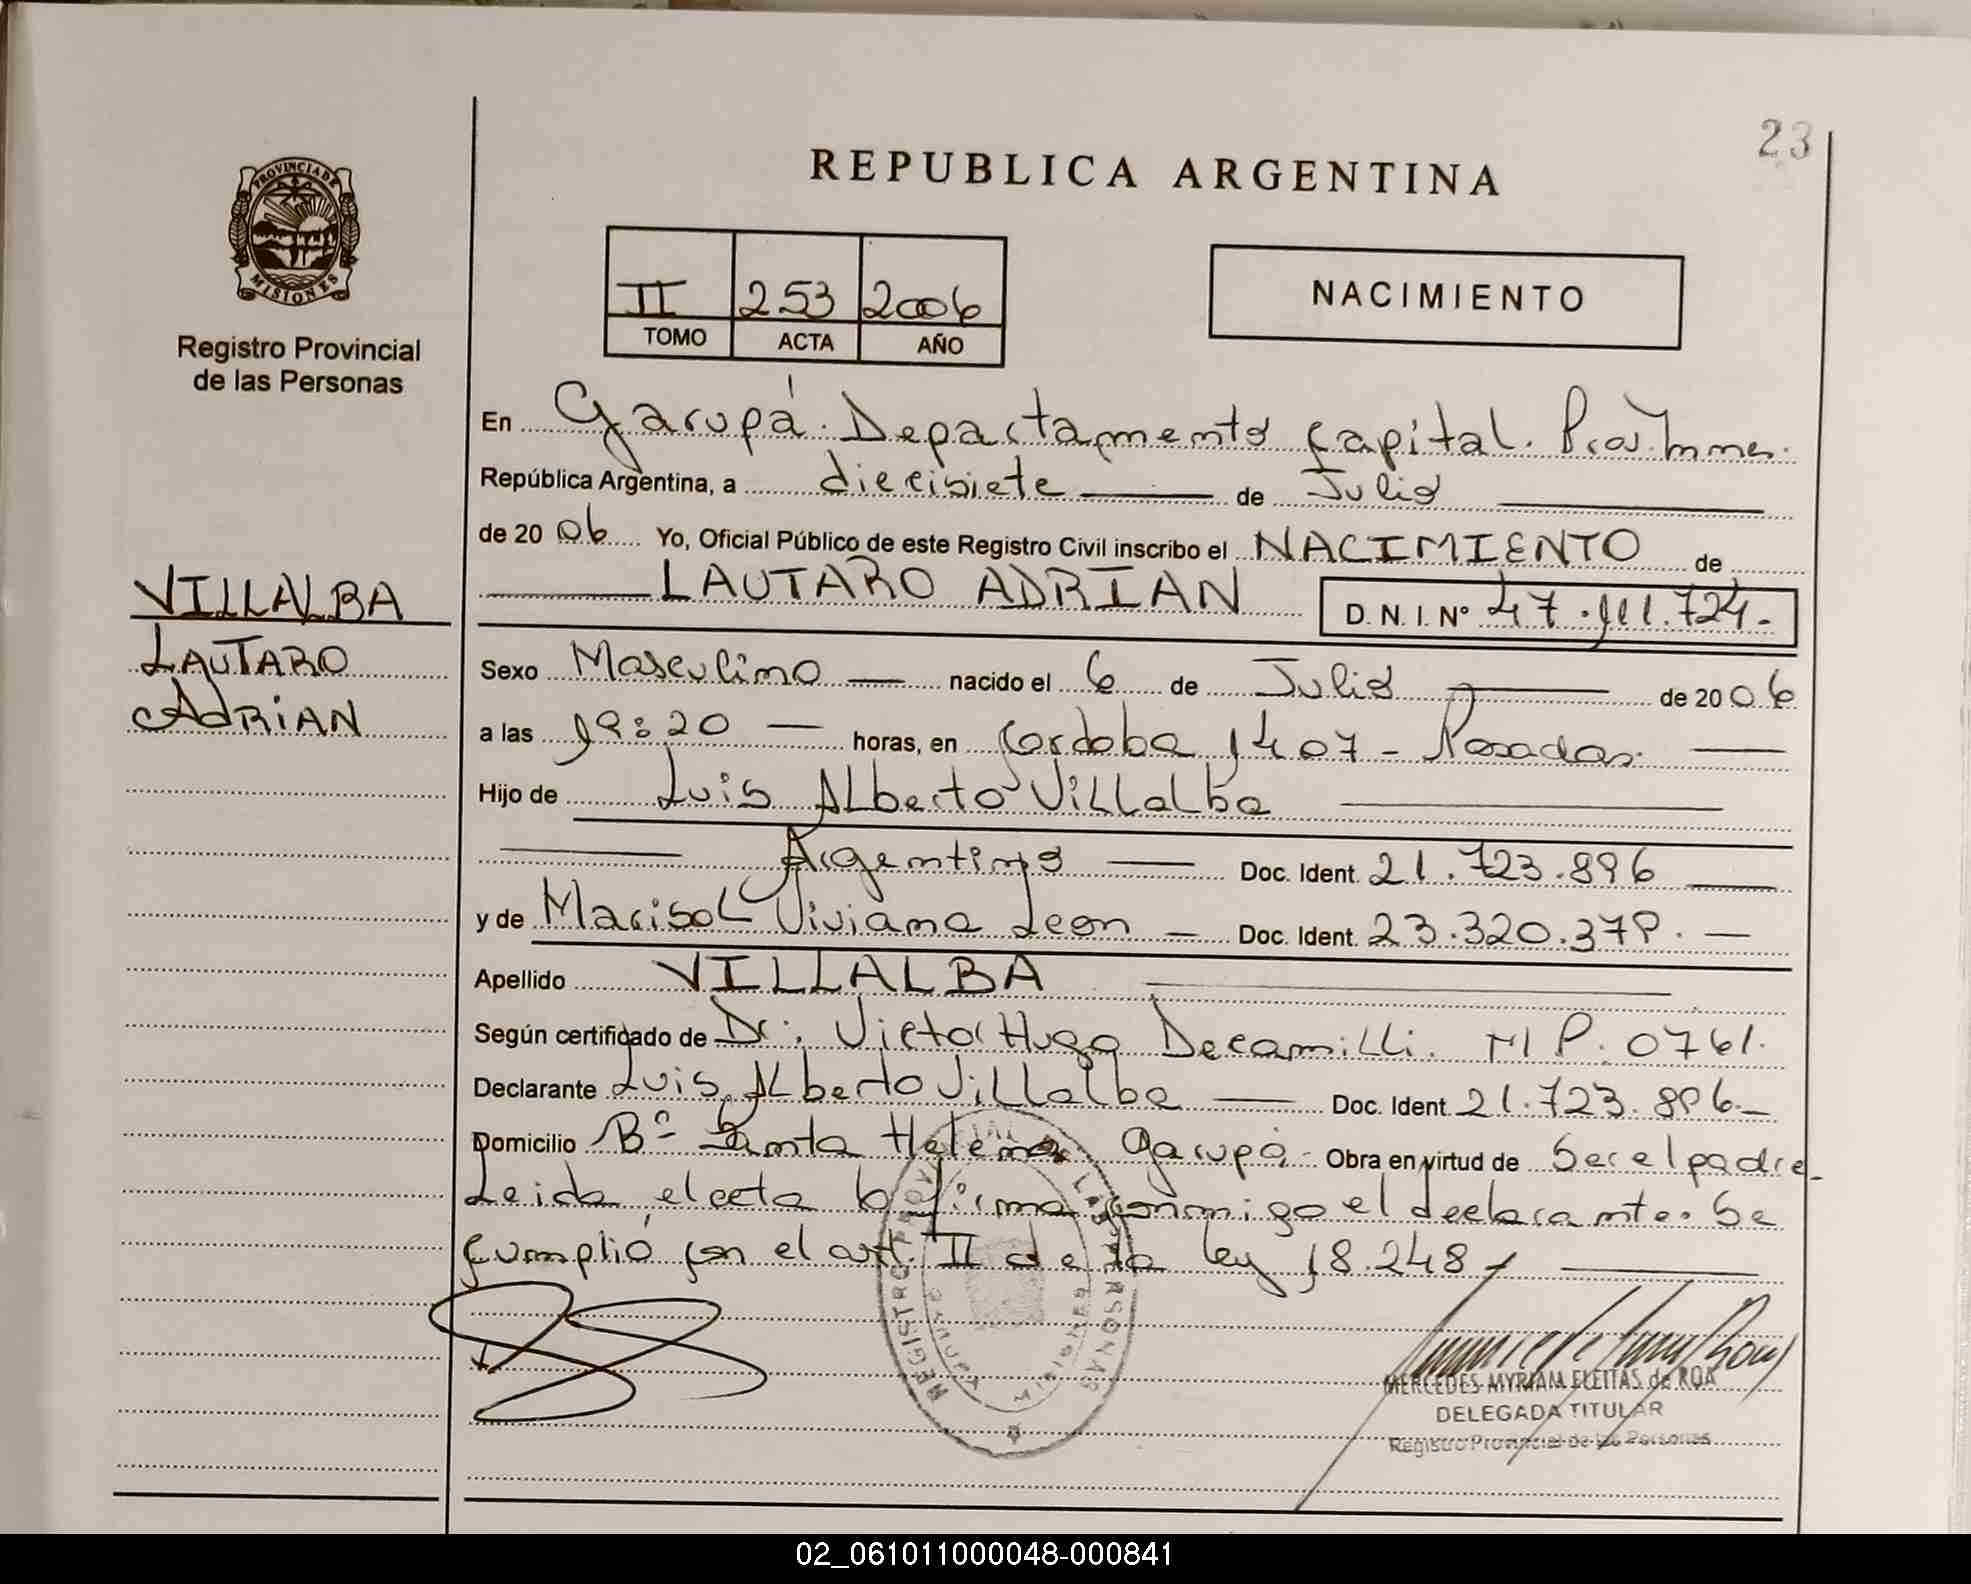 23
REPUBLICA ARGENTINA
PROVINCIA DE MISIONES
Registro Provincial
de las Personas
II 253 2006
TOMO ACTA AÑO
NACIMIENTO
En Garupá. Departamento Capital.
República Argentina, a diecisiete de Julio
de 2006 Yo, Oficial Público de este Registro Civil inscribo el NACIMIENTO de
LAUTARO ADRIAN D. N. I. Nº 47. .724.-
VILLALBA
LAUTARO
ADRIAN
Sexo Masculino nacido el 6 de Julio de 2006
a las 19:20 horas, en Cordoba 1407 - Posadas.
Hijo de Luis Alberto Villalba
Argentino Doc. Ident. 21.723.896
y de Marisol Viviana Leon Doc. Ident. 23.320.379.
Apellido VILLALBA
Según certificado de Dr. Victor Hugo Decamilli. M P. 0761.
Declarante Luis Alberto Villalba Doc. Ident. 21.723.896.
Domicilio Bº Santa Helena Garupá. Obra en virtud de Ser el padre
Leida el acta la firma conmigo el declarante. Se
cumplió con el art. II de la ley 18.248
REGISTRO PROVINCIAL DE LAS PERSONAS
MERCEDES MYRIAM FLEITAS de ROA
DELEGADA TITULAR
Registro Provincial de las Personas
02_061011000048-000841